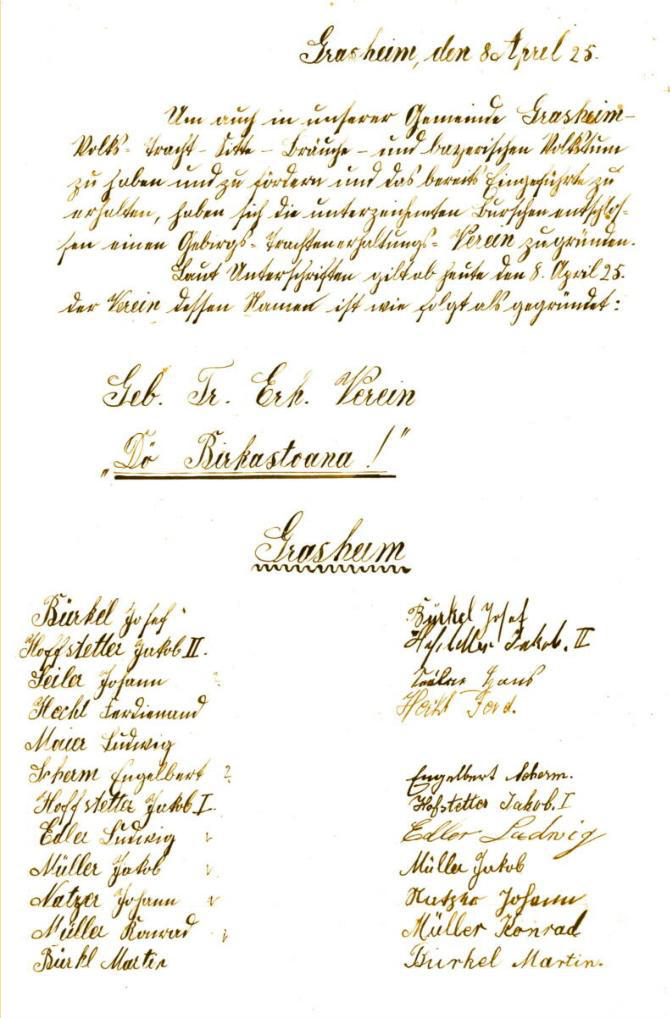 Grasheim, den 8 April 25.
Um auch in unserer Gemeinde Grasheim-
Volks- Tracht - Sitte - Bräuche - und bayerischen Volkstum
zu haben und zu fördern und das bereits Eingeführte zu
erhalten, haben sich die unterzeichneten Burschen entschlos-
sen einen Gebirgs- Trachtenerhaltungs- Verein zu gründen.
Laut Unterschriften gilt ab heute den 8. April 25.
der Verein dessen Namen ist wie folgt als gegründet:
Geb. Tr. Erh. Verein
„Dö Birkastoana!"
Grasheim
Bürkel Josef Bürkel Josef
Hoffstetter Jakob II. Hofstetter Jakob. II
Seiler Johann Hans
Hecht Ferdienand Hecht Ferd.
Maier Ludwig
Scherm Engelbert Engelbert Scherm.
Hoffstetter Jakob I. Hofstetter Jakob. I
Edler Ludwig Edler Ludwig
Müller Jakob Müller Jakob
Natzer Johann Natzer Johann
Müller Konrad Müller Konrad
Bürkl Martin Burkel Martin.